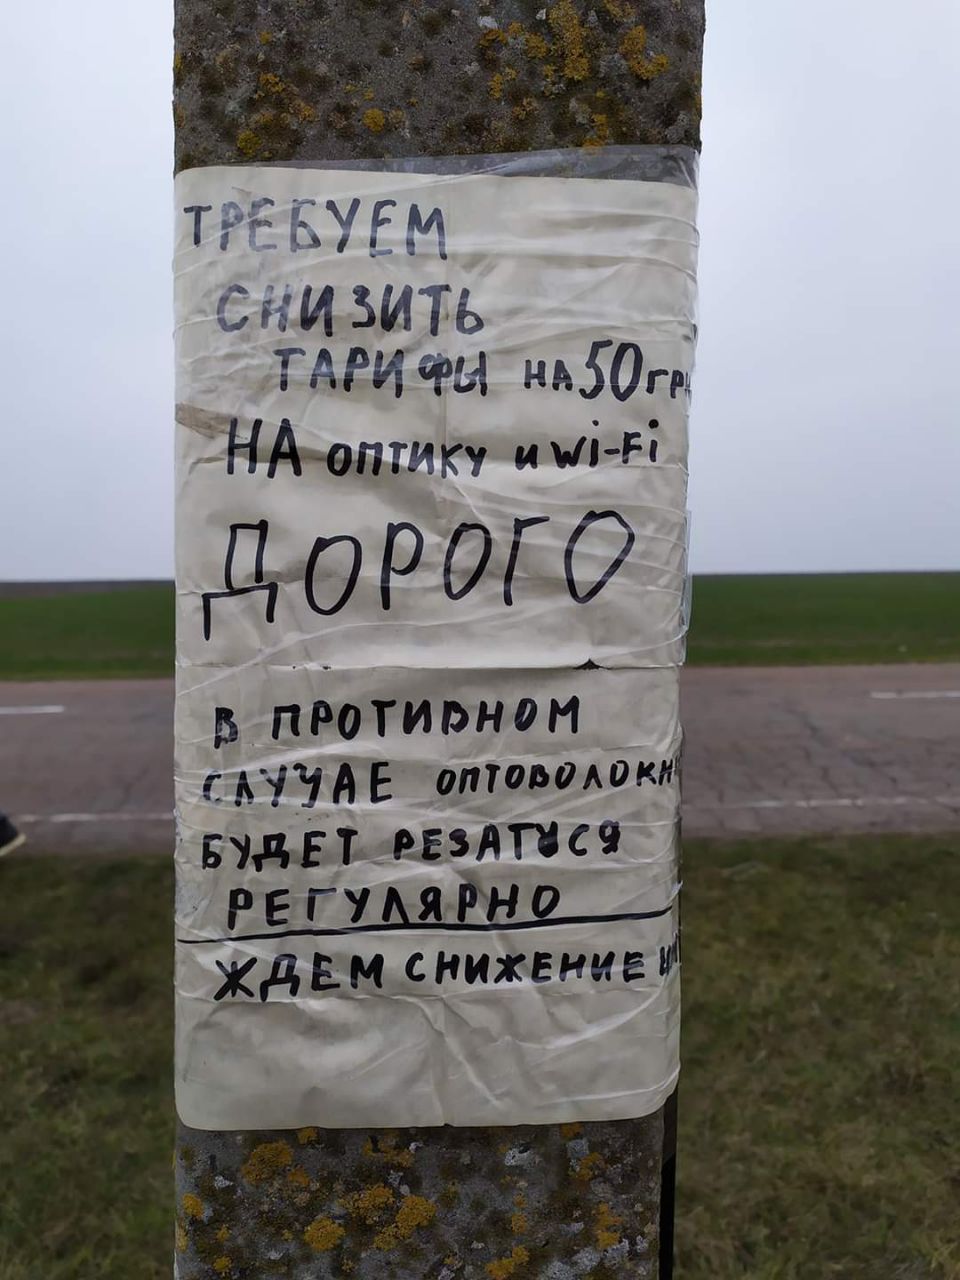 ТРЕБУЕМ
СНИЗИТЬ
ТАРИФЫ НА 50 ГРН
НА ОПТИКУ И Wi-Fi
ДОРОГО
В ПРОТИВНОМ
СЛУЧАЕ ОПТОВОЛОКН
БУДЕТ РЕЗАТЬСЯ
РЕГУЛЯРНО
ЖДЕМ СНИЖЕНИЕ